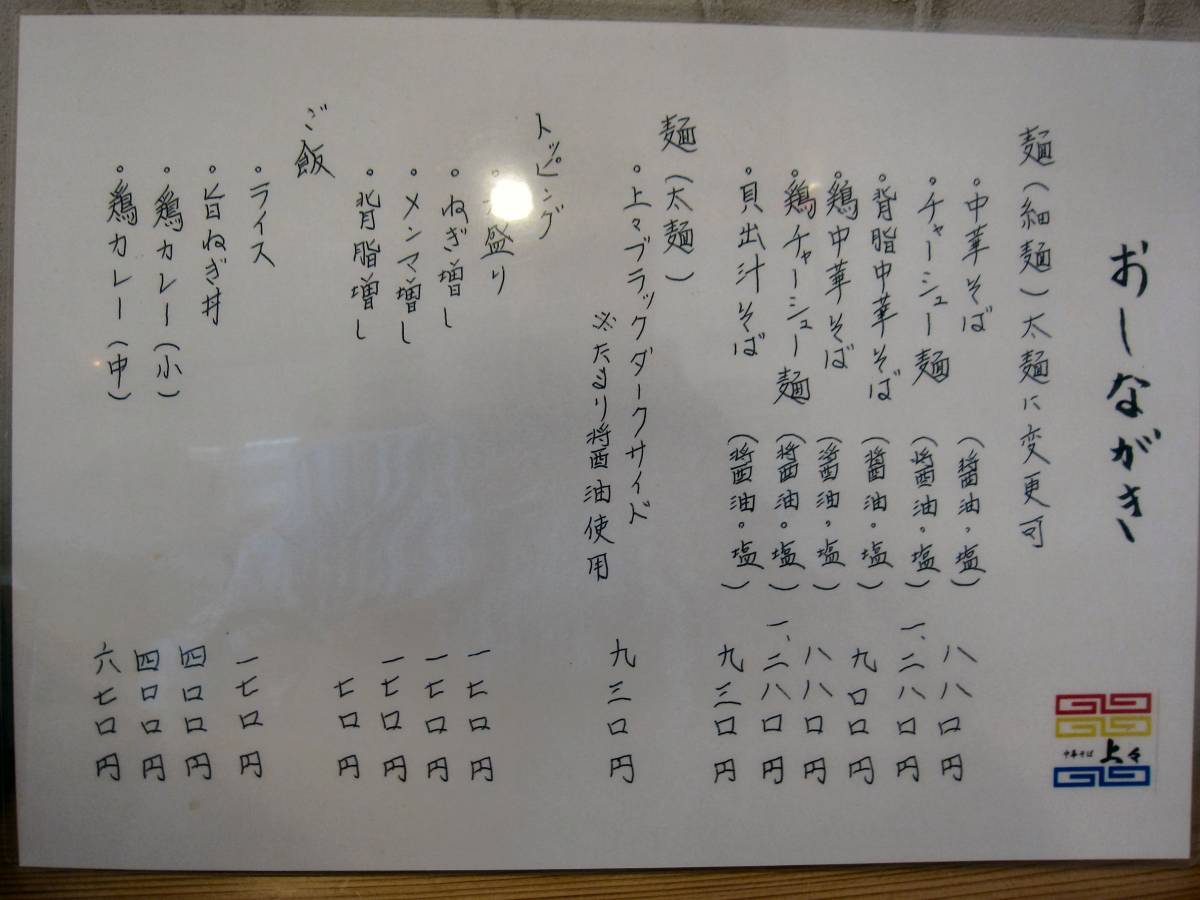 おしながき
麺(細麺)太麺に変更可
。中華そば (醤油・塩) 八八〇円
。チャーシュー麺 (醤油・塩) 一、二八〇円
。背脂中華そば (醤油・塩) 九〇〇円
。鶏中華そば (醤油・塩) 八八〇円
。鶏チャーシュー麺 (醤油・塩) 一、二八〇円
。貝出汁そば (醤油・塩) 九三〇円
麺(太麺)
。上々ブラックダークサイド 九三〇円
※たまり醤油使用
トッピング
。盛り 一七〇円
。ねぎ増し 一七〇円
。メンマ増し 一七〇円
。背脂増し 七〇円
ご飯
。ライス 一七〇円
。旨ねぎ丼 四〇〇円
。鶏カレー(小) 四〇〇円
。鶏カレー(中) 六七〇円
中華そば 上々